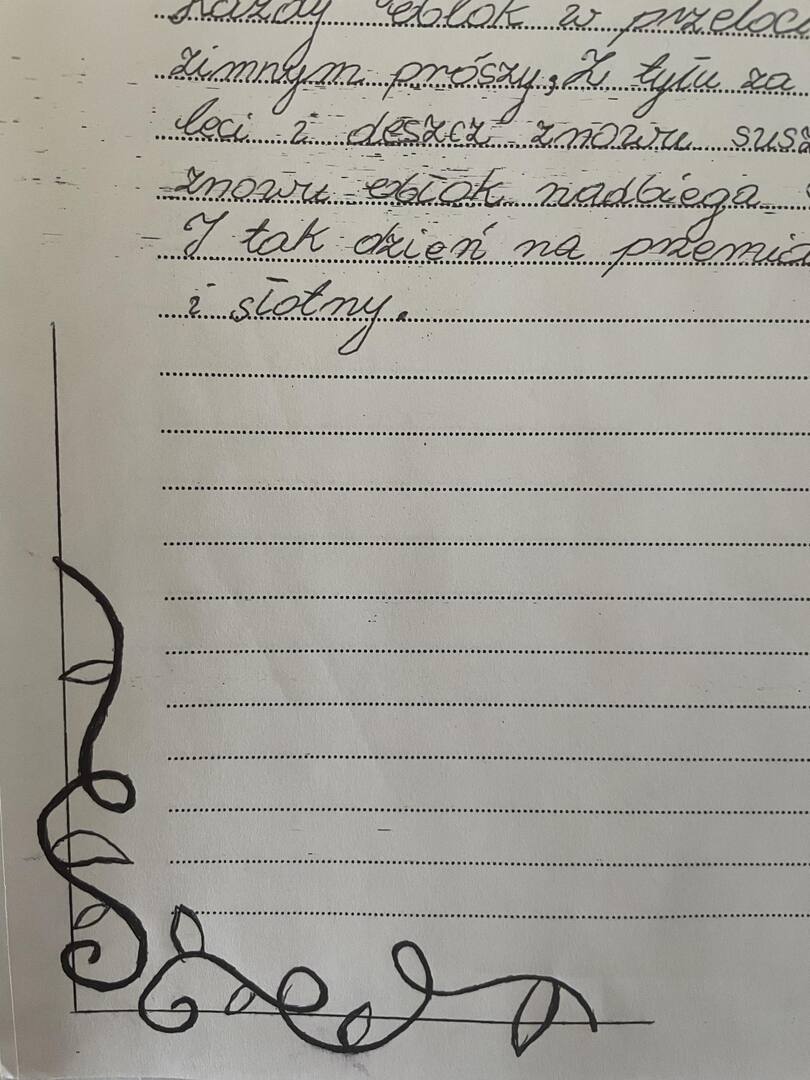 Każdy obłok w przeloci
zimnym prószy, Z tyłu za
leci i deszcz znowu susz
znowu obłok nadbiega
I tak dzień na przemia
i słotny.